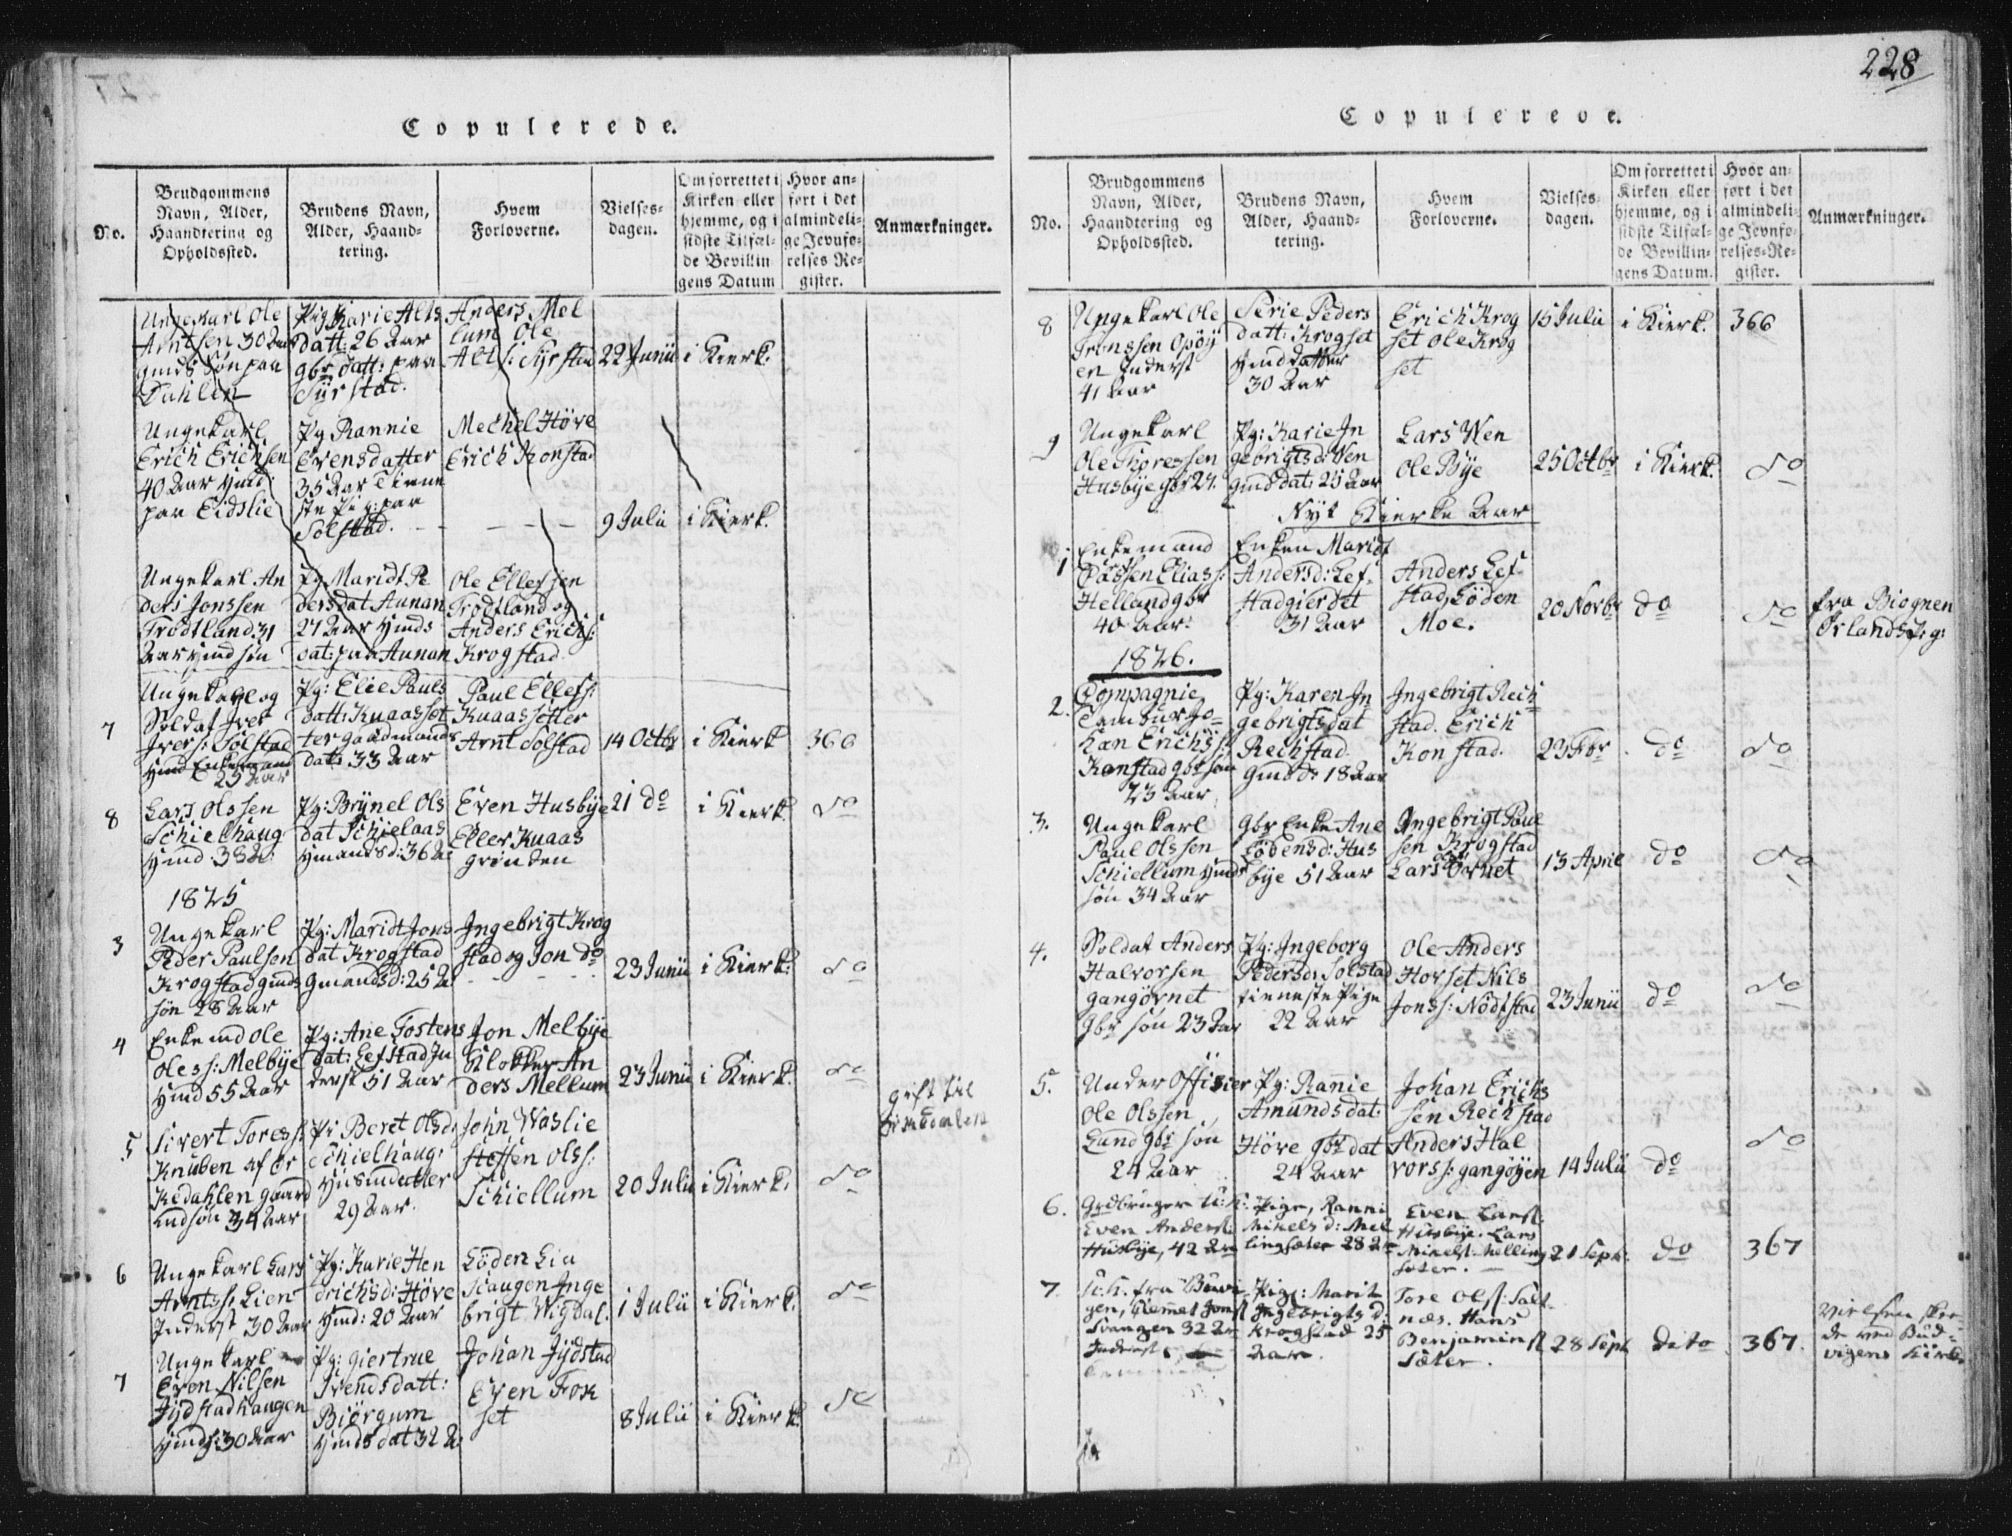 228
Copulerede.
No.
Brudgommens
Navn, Alder,
Haandtering og
Opholdssted.
Brudens Navn,
Alder, Haand-
tering.
Hvem
Forloverne.
Vielses-
dagen.
Om forrettet i
Kirken eller
hjemme, og i
sidste Tilfæl-
de Bevillin
gens Datum
Hvor an-
ført i det
almindeli-
ge Jevnfø-
relses-Re-
gister.
Anmærkninger.
Ungekarl Ole
Arntsen 30 Aar
gmds Søn paa
Dahlen
Pig Karie Alts
datt: 26 Aar
gbr datt: paa
Syrstad.
Anders Mel
lum Ole
Alts: Syrstad
22 Junii
i Kierk.
Ungekarl
Erich Erichsen
40 Aar Hmd:
paa Eidslie
Pg Rannie
Evensdatter
35 Aar Tiene
ste Pig: paa
Solstad.
Mechel Høve
Erich Konstad
9 Julii
i Kierk.
Ungekarl An
ders Jonssen
Frodtland 31
Aar Hmd søn
Pg Maridt Pe
dersdat Aunan
27 Aar Hmds
dat: paa Aunan
Ole Ellefsen
Frodtland og
Anders Erichs:
Krogstad
7
Ungekarl og
Soldat Iver
Ivers: Solstad
Hmd Enkemand
25 Aar
Pg: Elie Pauls
datt: Knaasset
ter gaadmands
dat: 33 Aar
Paul Ellefs:
Knaassetter
Arnt Solstad
14 Octbr
i Kierk
366
8
Lars Olssen
Schielhaug
Hmd 38 A:
Pg: Brynel Ols
dat Schielaas
Hmandsd: 36 A:
Even Husbye
Eller Knaas
grønden
21 do
i Kierk.
do
1825
3
Ungekarl
Peder Paulsen
Krogstad gmds
søn 28 Aar
Pg: Maridt Jons
dat Krogstad
Gmandsd: 25 A
Ingebrigt Krog
stad og Jon do
23 Junii
i Kierk:
do
4
Enkemd Ole
Oless: Melbye
Hmd 55 Aar
Pg: Ane Tostens
dat: Lefstad In
derst 51 Aar
Jon Melbye
Klokker An
ders Mellum
23 Junii
i Kierk.
do
gift til
5
Sivert Toress:
Knuben af Or
Kedahlen gaard
mdsøn 34 Aar
Pi Beret Olsd:
Schielhaug:
Husmdatter
29 Aar.
John Waslie
Steffen Olss:
Schiellum
20 Julii
i Kierk.
do
6
Ungekarl Lars
Arntss: Lien
Inderst 30 Aar
Pg: Karie Hen
drichsd: Høve
Hmd: 20 Aar
Løden Lia
Scaugen Inge
brigt Wigdal.
1 Julii
i Kierk.
do
7
Ungekarl
Even Nilsen
Jydstadhaugen
Hmds: 30 Aar
Pg: Giertrue
Svendsdatt:
Biørgum
Hmds dat 32 A:
Johan Jydstad
Even Fos
set
8 Julii
i Kierk.
do
Copulerede.
No.
Brudgommens
Navn, Alder,
Haandtering og
Opholdssted.
Brudens Navn,
Alder, Haand-
tering.
Hvem
Forloverne.
Vielses-
dagen.
Om forrettet i
Kirken eller
hjemme, og i
sidste Tilfæl-
de Bevillin-
gens Datum.
Hvor an-
ført i det
almindeli-
ge Jevnfø-
relses-Re-
gister.
Anmærkninger.
8
Ungekarl Ole
Tronssen Opøy
en Inderst
41 Aar
Serie Peders
datt: Krogset
Hmd datter
30 Aar
Erich Krog
set Ole Krog
set
15 Julii
i Kierk.
366
9
Ungekarl
Ole Thoressen
Husbye gbr 27.
Pg: Karie In
gebrigtsd: Wen
gmd dat: 25 Aar
Lars Wen
Ole Bye
25 Octbr
i Kierk.
do
Nyt Kierke Aar
1
Enkemand
Elias:
Helland gbr
40 Aar:
Enken Maridt
Andersd: Lef
stadgierdet
31 Aar
Anders Lef
stad Løden
Moe.
20 Novbr
do
do
fra Biognen
Ørlands Pg:
1826.
2.
Compagnie
Tambur Jo-
han Erichs:
Konstad gbr søn
23 Aar
Pg: Karen In
gebrigtsdat
Rechstad
gmds 18 Aar
Ingebrigt Rech
stad. Erich
Konstad.
23 Fbr
do
do
3.
Ungekarl
Paul Olssen
Schiellum Hmds
søn 34 Aar
gbr Enke Ane
Lødensd: Hus
bye 51 Aar
Ingebrigt Paul
sen Krogstad
Lars Ørnet
13 April
do
do
4.
Soldat Anders
Halvorsen
Gangørnet
gbr søn 23 Aar
Pg: Ingeborg
Pedersd: Solstad
tieneste Pige
22 Aar
Ole Anders
Horset Nils
Jonss: Nodtstad
23 Junii
do
do
5.
Under Offisier
Ole Olssen
Lund gbr søn
24 Aar
Pg: Ranie
Amundsdat:
Høve gbr dat
24 Aar
Johan Erichs
sen Rechstad
Anders Hal
vorss: Gangøyen
14 Julii
do
do
6.
Grdbruger U: K:
Even Anders.
Husbye, 42 Aar
Pige, Ranni
Mikels d: Mel
lingsæter 28 Aar
Even Lars.
Husbye. Lars
Mikels. Melling
sæter.
21 Sept.
do
367
7.
U: K. fra Buvi
gen, Klemet Jons.
Svangen 32 Aar
Inderst,
Pige: Marit
Ingebrigts d:
Krogstad 25
Aar.
Tore Ols: Salt
næs. Hans
Benjamins.
Sæter.
28 Sept
dito
367.
Vielsen skee-
de ved Bud-
vigens Kirke